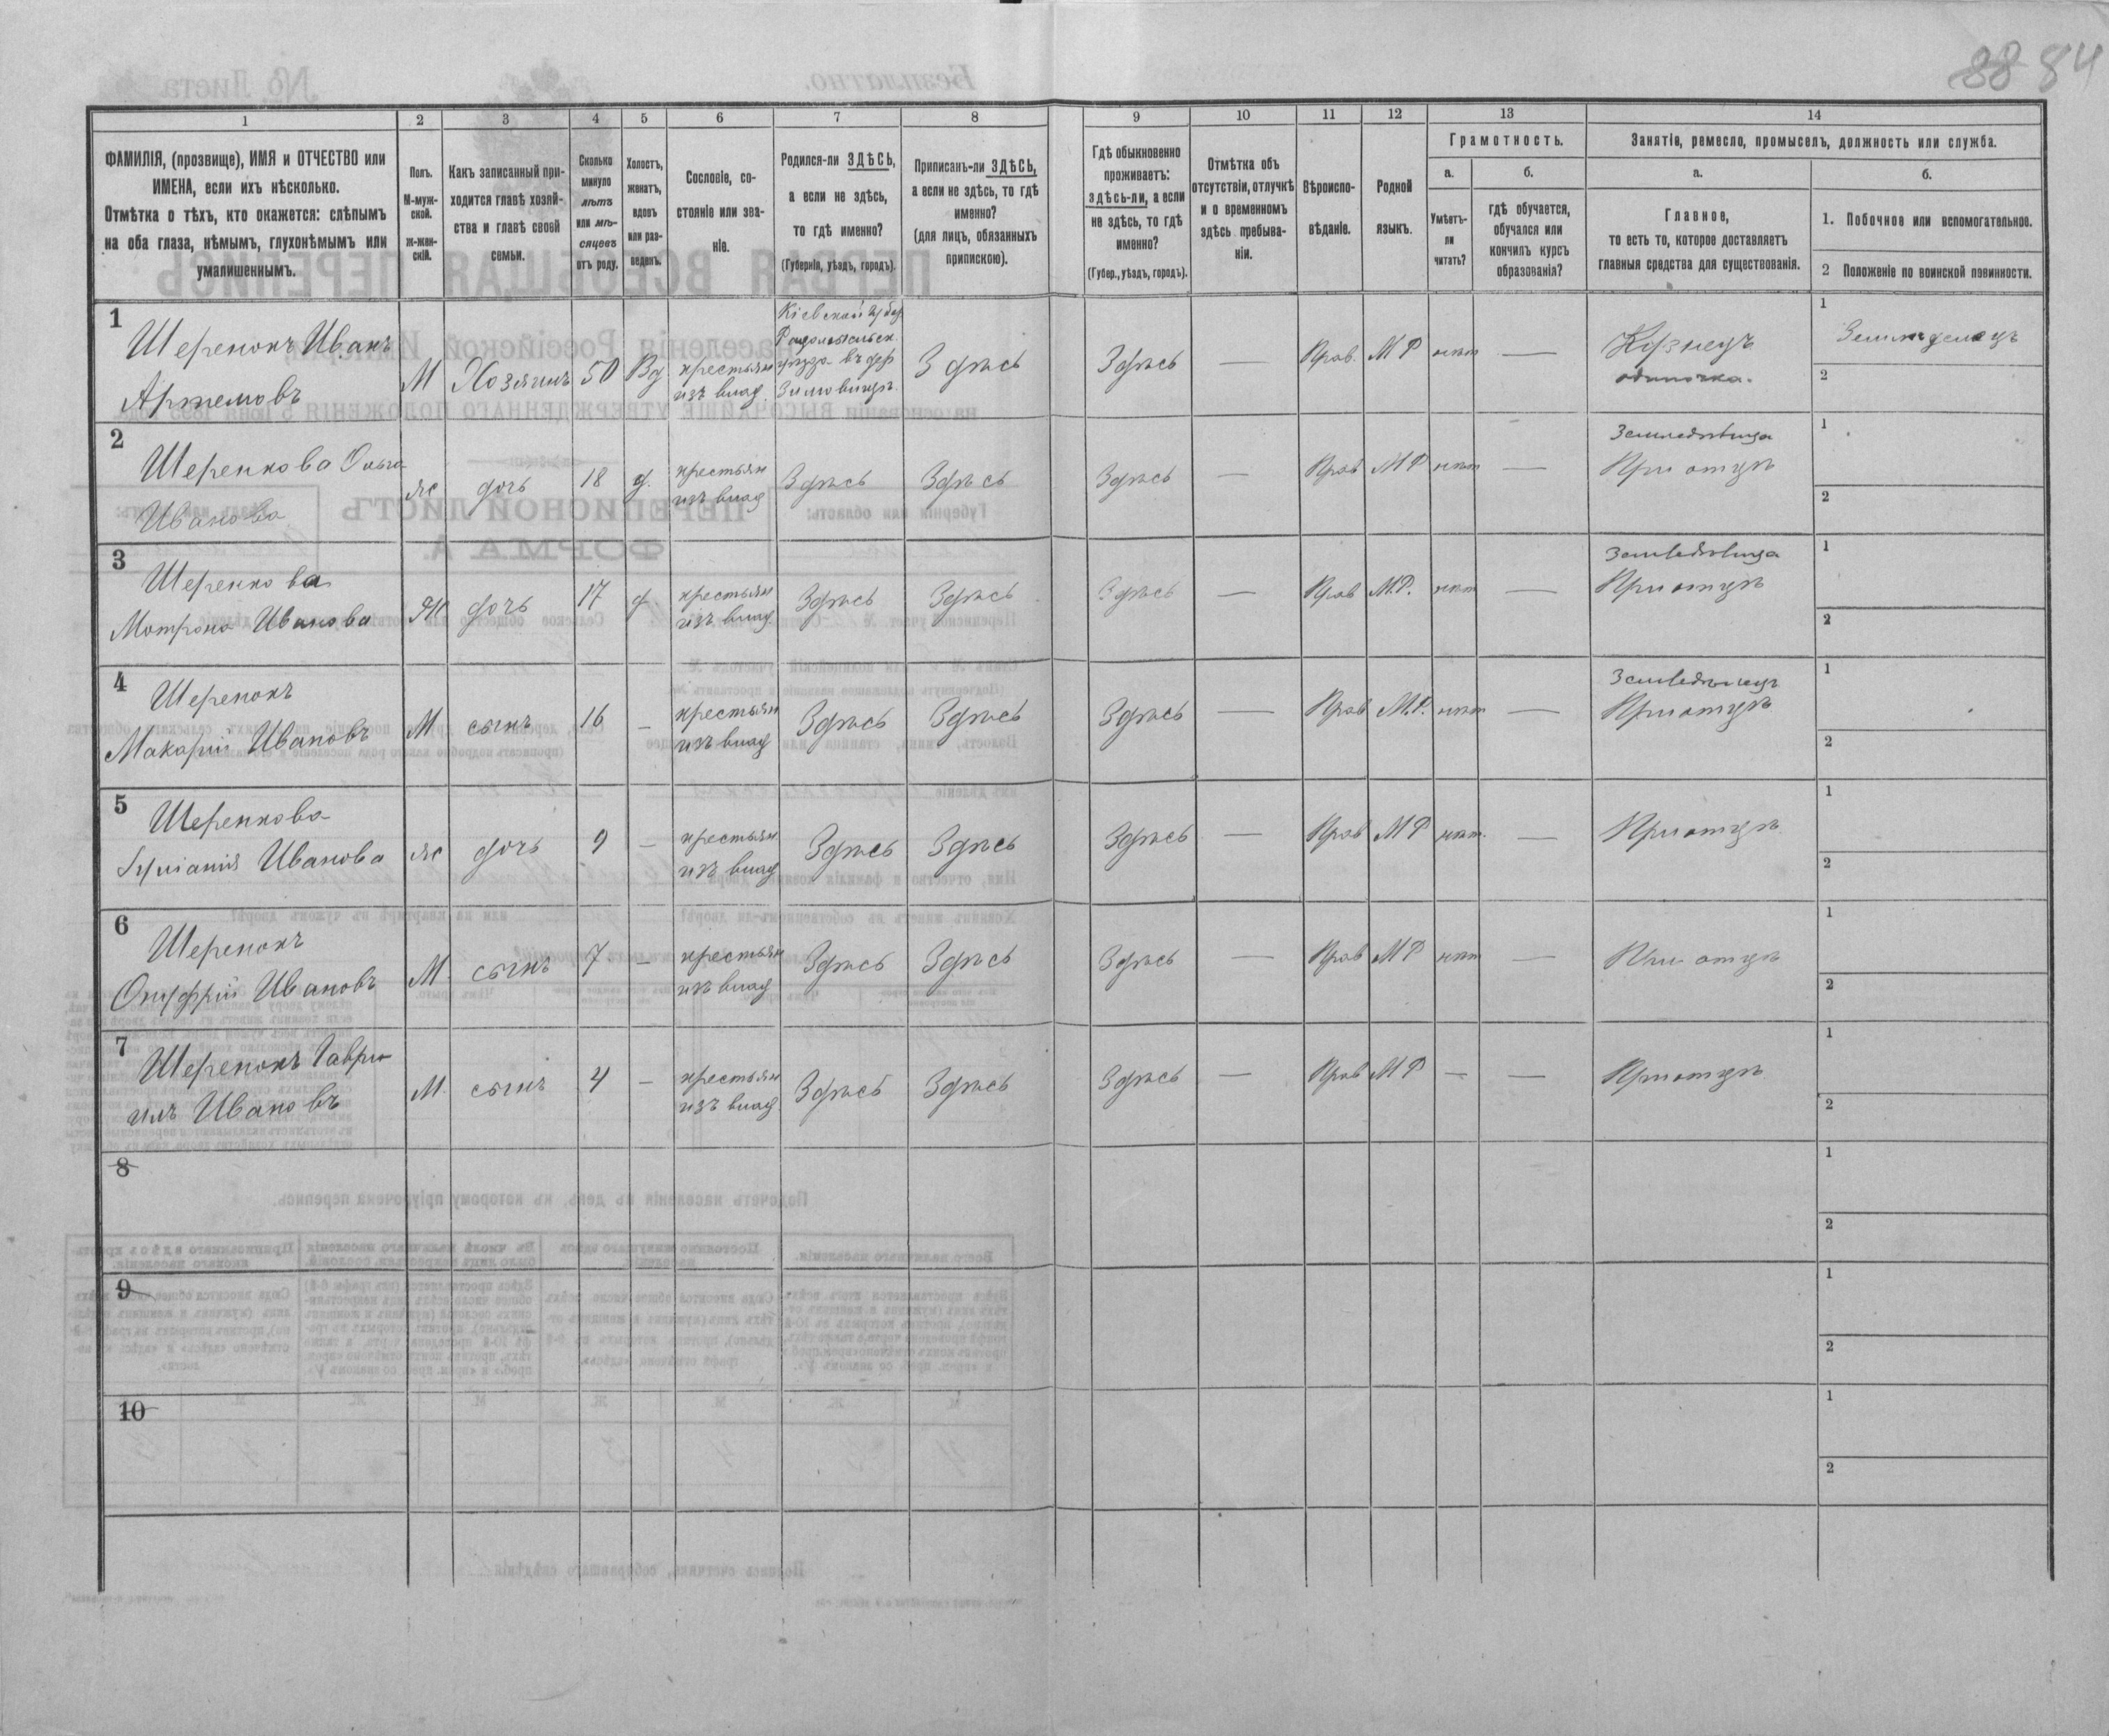 88 84
1 2 3 4 5 6 7 8 9 10 11 12 13 14
ФАМИЛІЯ, (прозвище), ИМЯ и ОТЧЕСТВО или
ИМЕНА, если ихъ нѣсколько.
Отмѣтка о тѣхъ, кто окажется: слѣпымъ
на оба глаза, нѣмымъ, глухонѣмымъ или
умалишеннымъ.
Полъ.
М-муж-
ской.
Ж-жен-
скій.
Какъ записанный при-
ходится главѣ хозяй-
ства и главѣ своей
семьи.
Сколько
минуло
лѣтъ
или мѣ-
сяцевъ
отъ роду.
Холостъ,
женатъ,
вдовъ
или раз-
веденъ.
Сословіе, со-
стояніе или зва-
ніе.
Родился-ли ЗДѢСЬ,
а если не здѣсь,
то гдѣ именно?
(Губернія, уѣздъ, городъ).
Приписанъ-ли ЗДѢСЬ,
а если не здѣсь, то гдѣ
именно?
(для лицъ, обязанныхъ
припискою).
Гдѣ обыкновенно
проживаетъ:
здѣсь-ли, а если
не здѣсь, то гдѣ
именно?
(Губер., уѣздъ, городъ).
Отмѣтка объ
отсутствіи, отлучкѣ
и о временномъ
здѣсь пребыва-
ніи.
Вѣроиспо-
вѣданіе.
Родной
языкъ.
Грамотность.
а.
Умѣетъ-
ли
читать?
б.
гдѣ обучается,
обучался или
кончилъ курсъ
образованія?
Занятіе, ремесло, промыселъ, должность или служба.
а.
Главное,
то есть то, которое доставляетъ
главныя средства для существованія.
б.
1. Побочное или вспомогательное.
2 Положеніе по воинской повинности.
1
Шеренокъ Иванъ
Артемовъ
М Хозяинъ 50 Вд
крестьян
изъ влад.
Кіевской губер
Радомысльск.
уѣзда въ дер
Здѣсь Здѣсь — Прав. МР нѣт —
Кузнецъ
одиночка.
1 Земледелецъ
2
2
Шеренкова Ольга
Иванова
ж дочь 18 д.
крестьян
изъ влад
Здѣсь Здѣсь Здѣсь — Прав МР нѣт —
При отцѣ
1
2
3
Шеренкова
Мотрона Иванова
Ж дочь 17 д
крестьян
изъ влад
Здѣсь Здѣсь Здѣсь — Прав М.Р. нѣт —
При отцѣ
1
2
4
Шеренокъ
Макарій Ивановъ
М сынъ 16 —
крестьян
изъ влад
Здѣсь Здѣсь Здѣсь — Прав М.Р. нѣт —
Земледѣлецъ
При отцѣ
1
2
5
Шеренкова
Іуліанія Иванова
ж дочь 9 —
крестьян
изъ влад
Здѣсь Здѣсь Здѣсь — Прав МР нѣт. —
При отцѣ
1
2
6
Шеренокъ
Онуфрій Ивановъ
М. сынъ 7 —
крестьян
изъ влад
Здѣсь Здѣсь Здѣсь — Прав МР нѣт —
При отцѣ
1
2
7
Шеренокъ Гаври
илъ Ивановъ
М. сынъ 4 —
крестьян
изъ влад
Здѣсь Здѣсь Здѣсь — Прав МР — —
При отцѣ
1
2
8
1
2
9
1
2
10
1
2